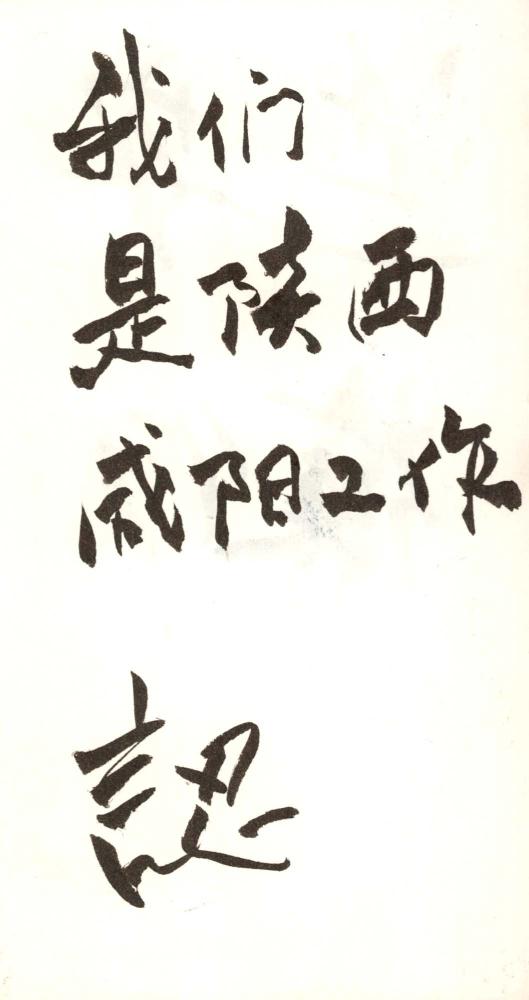 我们
是陕西
咸阳工作
認